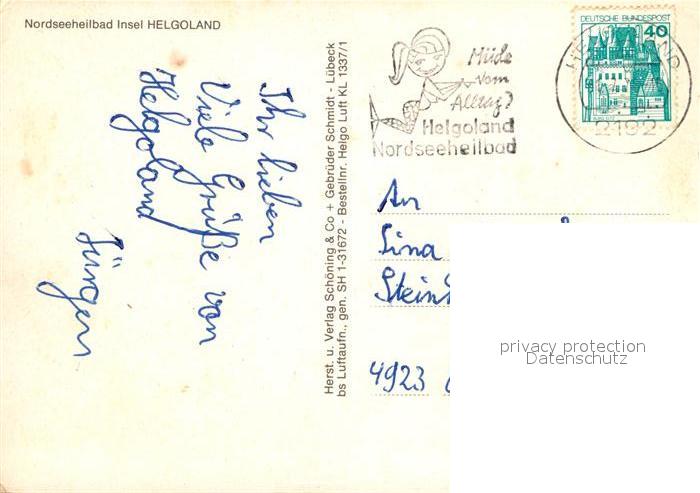 Nordseeheilbad Insel HELGOLAND
Ihr lieben
Viele Grüße von
Helgoland
Jürgen
Herst. u. Verlag Schöning & Co + Gebrüder Schmidt - Lübeck
bs Luftaufn., gen. SH 1-31672 - Bestellnr. Helgo Luft KL 1337/1
Müde
vom
Alltag?
Helgoland
Nordseeheilbad
DEUTSCHE BUNDESPOST
40
2192
An
Sina
4923
privacy protection
Datenschutz